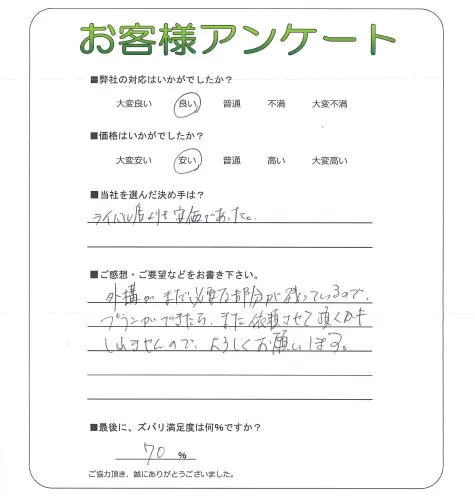 お客様アンケート
■弊社の対応はいかがでしたか？
大変良い 良い 普通 不満 大変不満
■価格はいかがでしたか？
大変安い 安い 普通 高い 大変高い
■当社を選んだ決め手は？
ライバル店よりも安価であった。
■ご感想・ご要望などをお書き下さい。
外構がまだ必要な部分が残っているので、
プランができたら、また依頼させて頂くかも
しれませんので、よろしくお願いします。
■最後に、ズバリ満足度は何％ですか？
70 %
ご協力頂き、誠にありがとうございました。